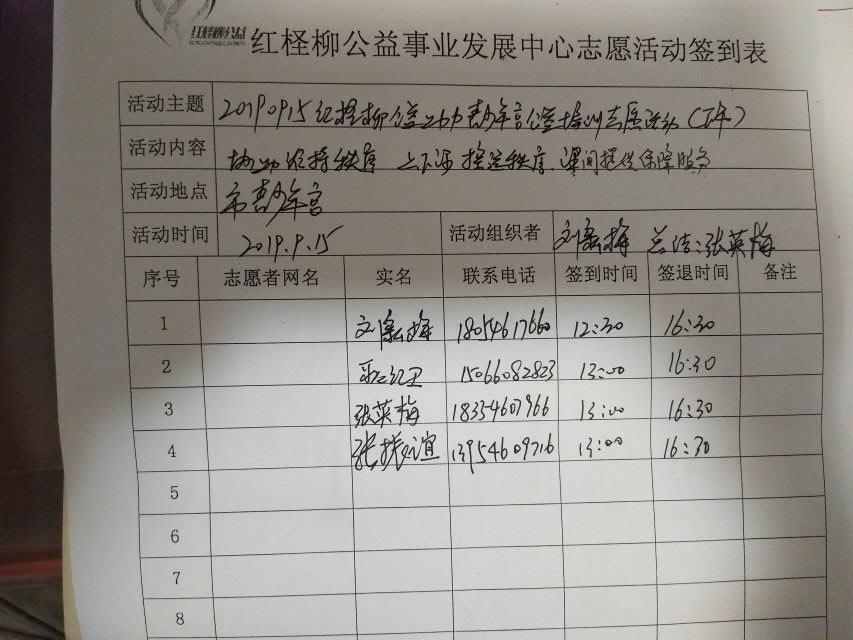 红柽柳公益
红柽柳公益事业发展中心志愿活动签到表
活动主题 20190915红柽柳公益协助青少年宫公益培训志愿活动(下午)
活动内容 协助维持秩序 上下课 指定秩序、课间提供保障服务
活动地点 市青少年宫
活动时间 2019.9.15 活动组织者 总结:张英梅
序号 志愿者网名 实名 联系电话 签到时间 签退时间 备注
1 18054617660 12:30 16:30
2 15066082823 13:00 16:30
3 张英梅 18354607966 13:00 16:30
4 张振谊 13954609716 13:00 16:30
5
6
7
8